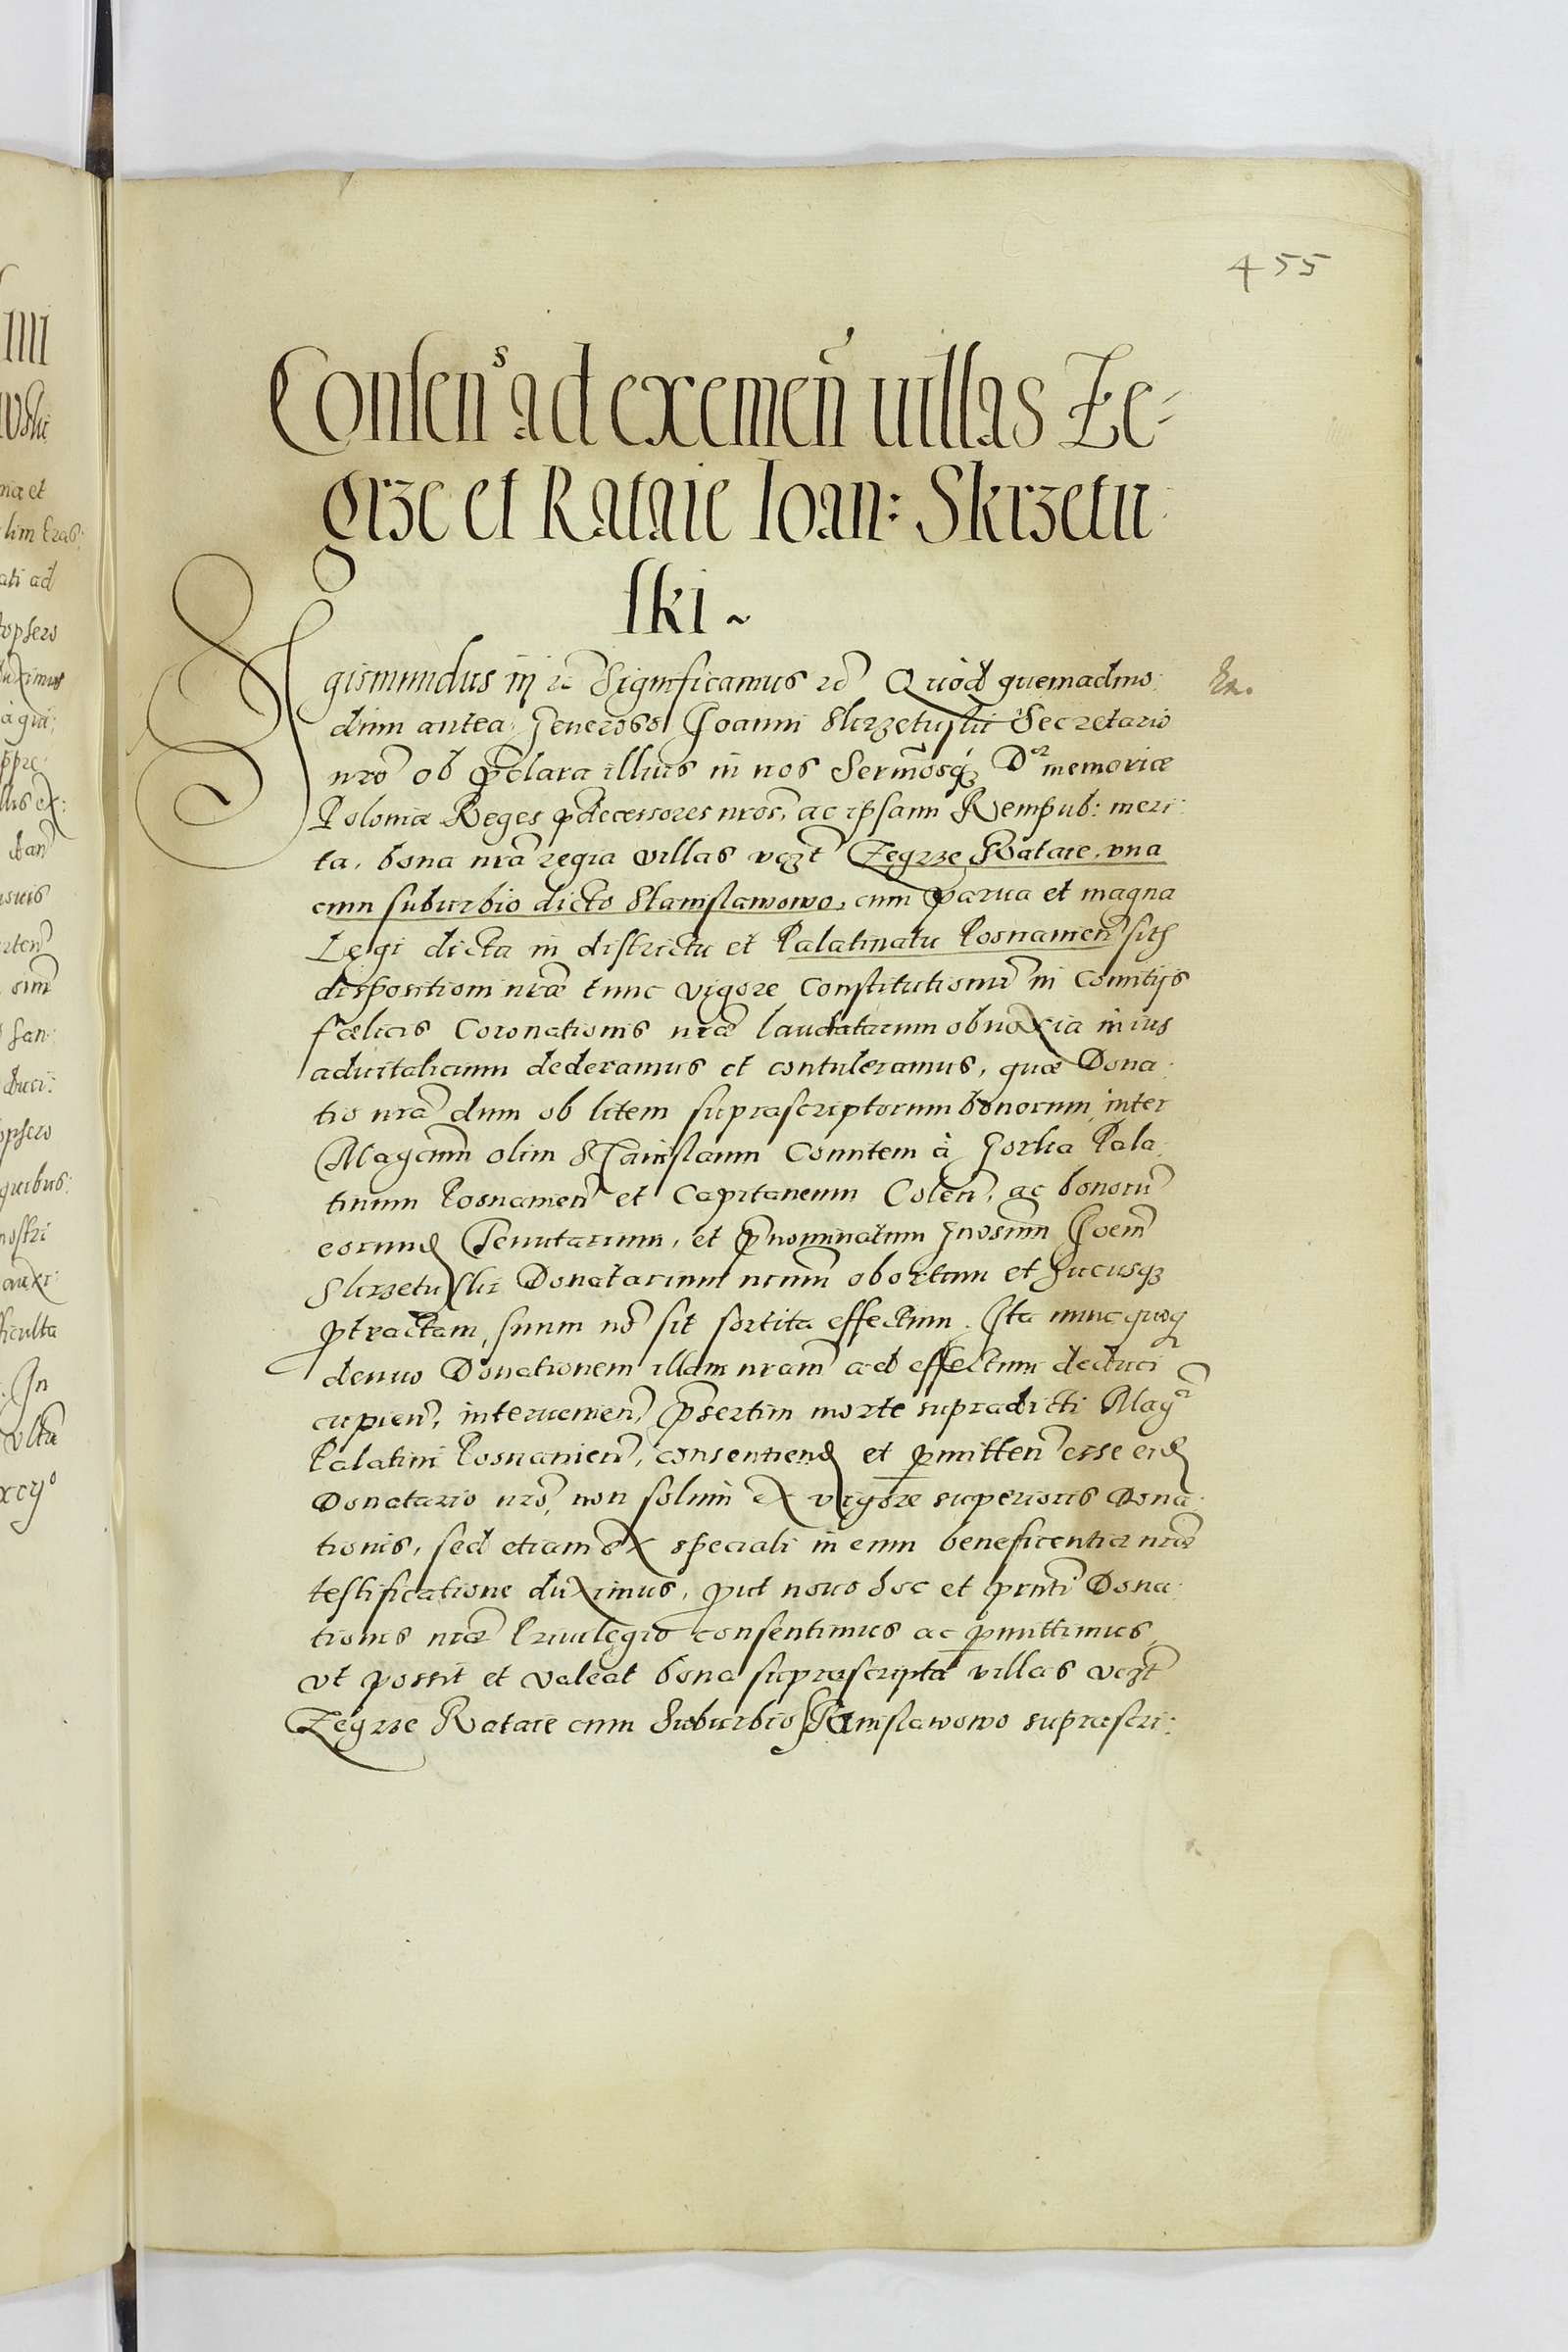 455
Consen^s ad exemen̄ uillas Ze-
grze et Rataie Ioan: Skrzetu
ski ~
Sigismundus iij rc̃ Significamus rc̃ Quòd quemadmo:
dum antea Generoso Joanni Skrzetuski Secretario
nr̃o ob p̃clara illius in nos Serm̃osq́ D^or memoriæ
Poloniæ Reges p̃decessores nr̃os, ac ipsam Rempub: meri:
ta, bona nr̃a regia villas vczt̃ Zegrze Rataie, vna
cum suburbio dicto Stanislawowo, cum parua et magna
Legi dicta in districtu et Palatinatu Posnanien̄
dispositioni nr̃æ tunc vigore Constitutionũ in Comitijs
fælicis Coronationis nr̃æ laudatarum obnoxia in ius
aduitalicium dederamus et contuleramus, quæ Dona:
tio nr̃a dum ob litem suprascriptorum bonorum inter
Magcum̃ olim Stanislaum Comitem à Gorka Pala:
tinum Posnanien̄ et Capitaneum Colen̄, ac bonorũ
eorund Tenutarium, et p̃nominatum Gnosum̃ Joem̃
Skrzetuski Donatarium nrum̃ obortam et hucusq
ptractam, suum nõ sit sortita effectum. Ita nunc quoq
denuo Donationem illam nram̃ ad effectum deduci
cupien̄, interuenien̄, p̃sertim morte supradicti Mag^ci
Palatini Posnanien̄, consentiend et pmitten̄ esse eid
Donatario nr̃o, non solum ex vigore superioris Dona:
tionis, sed etiam ex speciali in eum beneficentiæ nr̃æ
testificatione duximus, put nouo hoc et pr̃nti Dona:
tionis nr̃æ Priuilegio consentimus ac pmittimus,
vt possit et valeat bona suprascripta villas vczt̃
Zegrze Rataie cum Suburbio Stanislawowo suprascri: